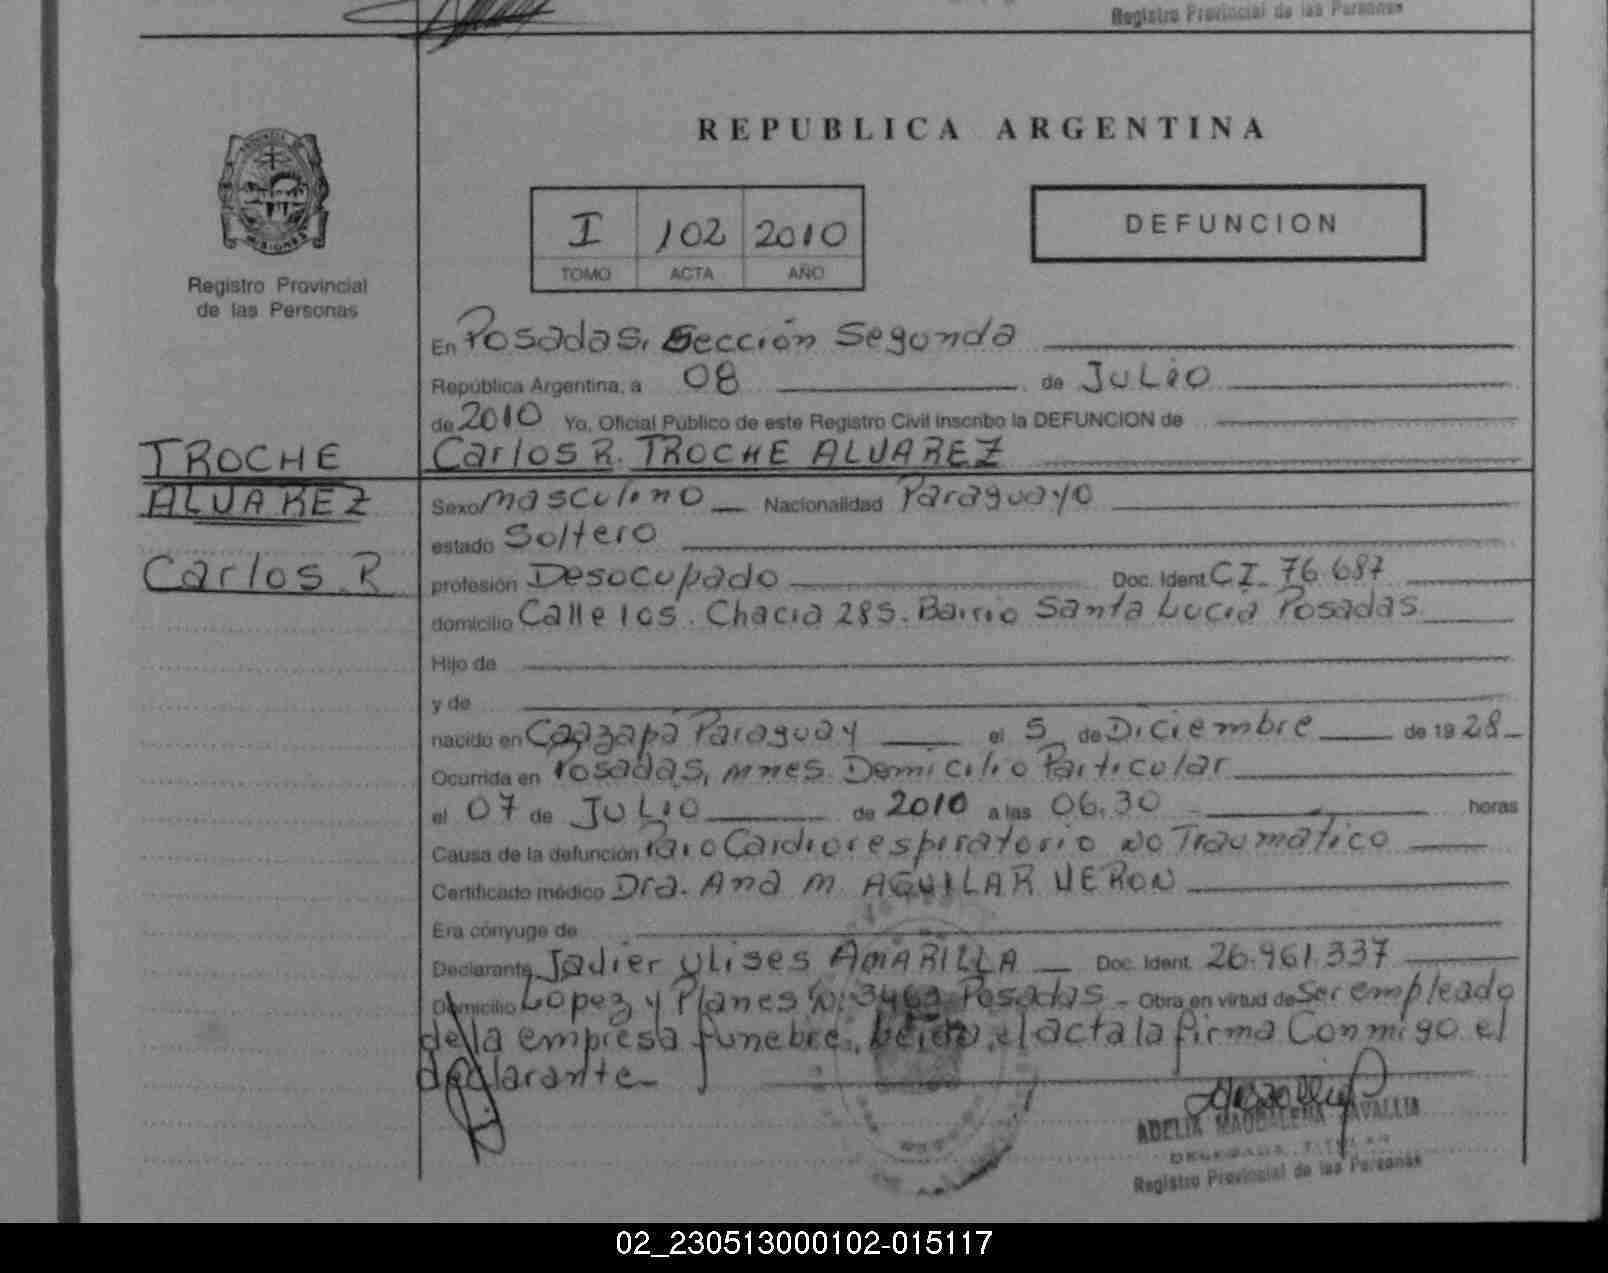 Registro Provincial de las Personas
REPUBLICA ARGENTINA
MISIONES
I 102 2010
TOMO ACTA AÑO
DEFUNCION
Registro Provincial
de las Personas
En Posadas, Sección Segunda
República Argentina, a 08 de JULIO
de 2010 Yo, Oficial Público de este Registro Civil inscribo la DEFUNCION de
TROCHE
Carlos R. TROCHE ALVAREZ
ALVAREZ
Sexo masculino Nacionalidad Paraguayo
estado Soltero
Carlos R
profesión Desocupado Doc. Ident. CI. 76.687
domicilio Calle 105. Chacra 285. Barrio Santa Lucia Posadas
Hijo de
y de
nacido en Caazapá Paraguay el 5 de Diciembre de 1928
Ocurrida en Posadas, mnes. Domicilio Particular
el 07 de JULIO de 2010 a las 06.30 horas
Causa de la defunción Paro Cardiorespiratorio no Traumático
Certificado médico Dra. Ana M. AGUILAR VERON
Era cónyuge de
Declarante Javier Ulises AMARILLA Doc. Ident. 26.961.337
Domicilio Lopez y Planes N. 3469 Posadas - Obra en virtud de Ser empleado
de la empresa funebre, leida el acta la firma Conmigo el
declarante
ADELIA MAGDALENA
DELEGADA TITULAR
Registro Provincial de las Personas
02_230513000102-015117